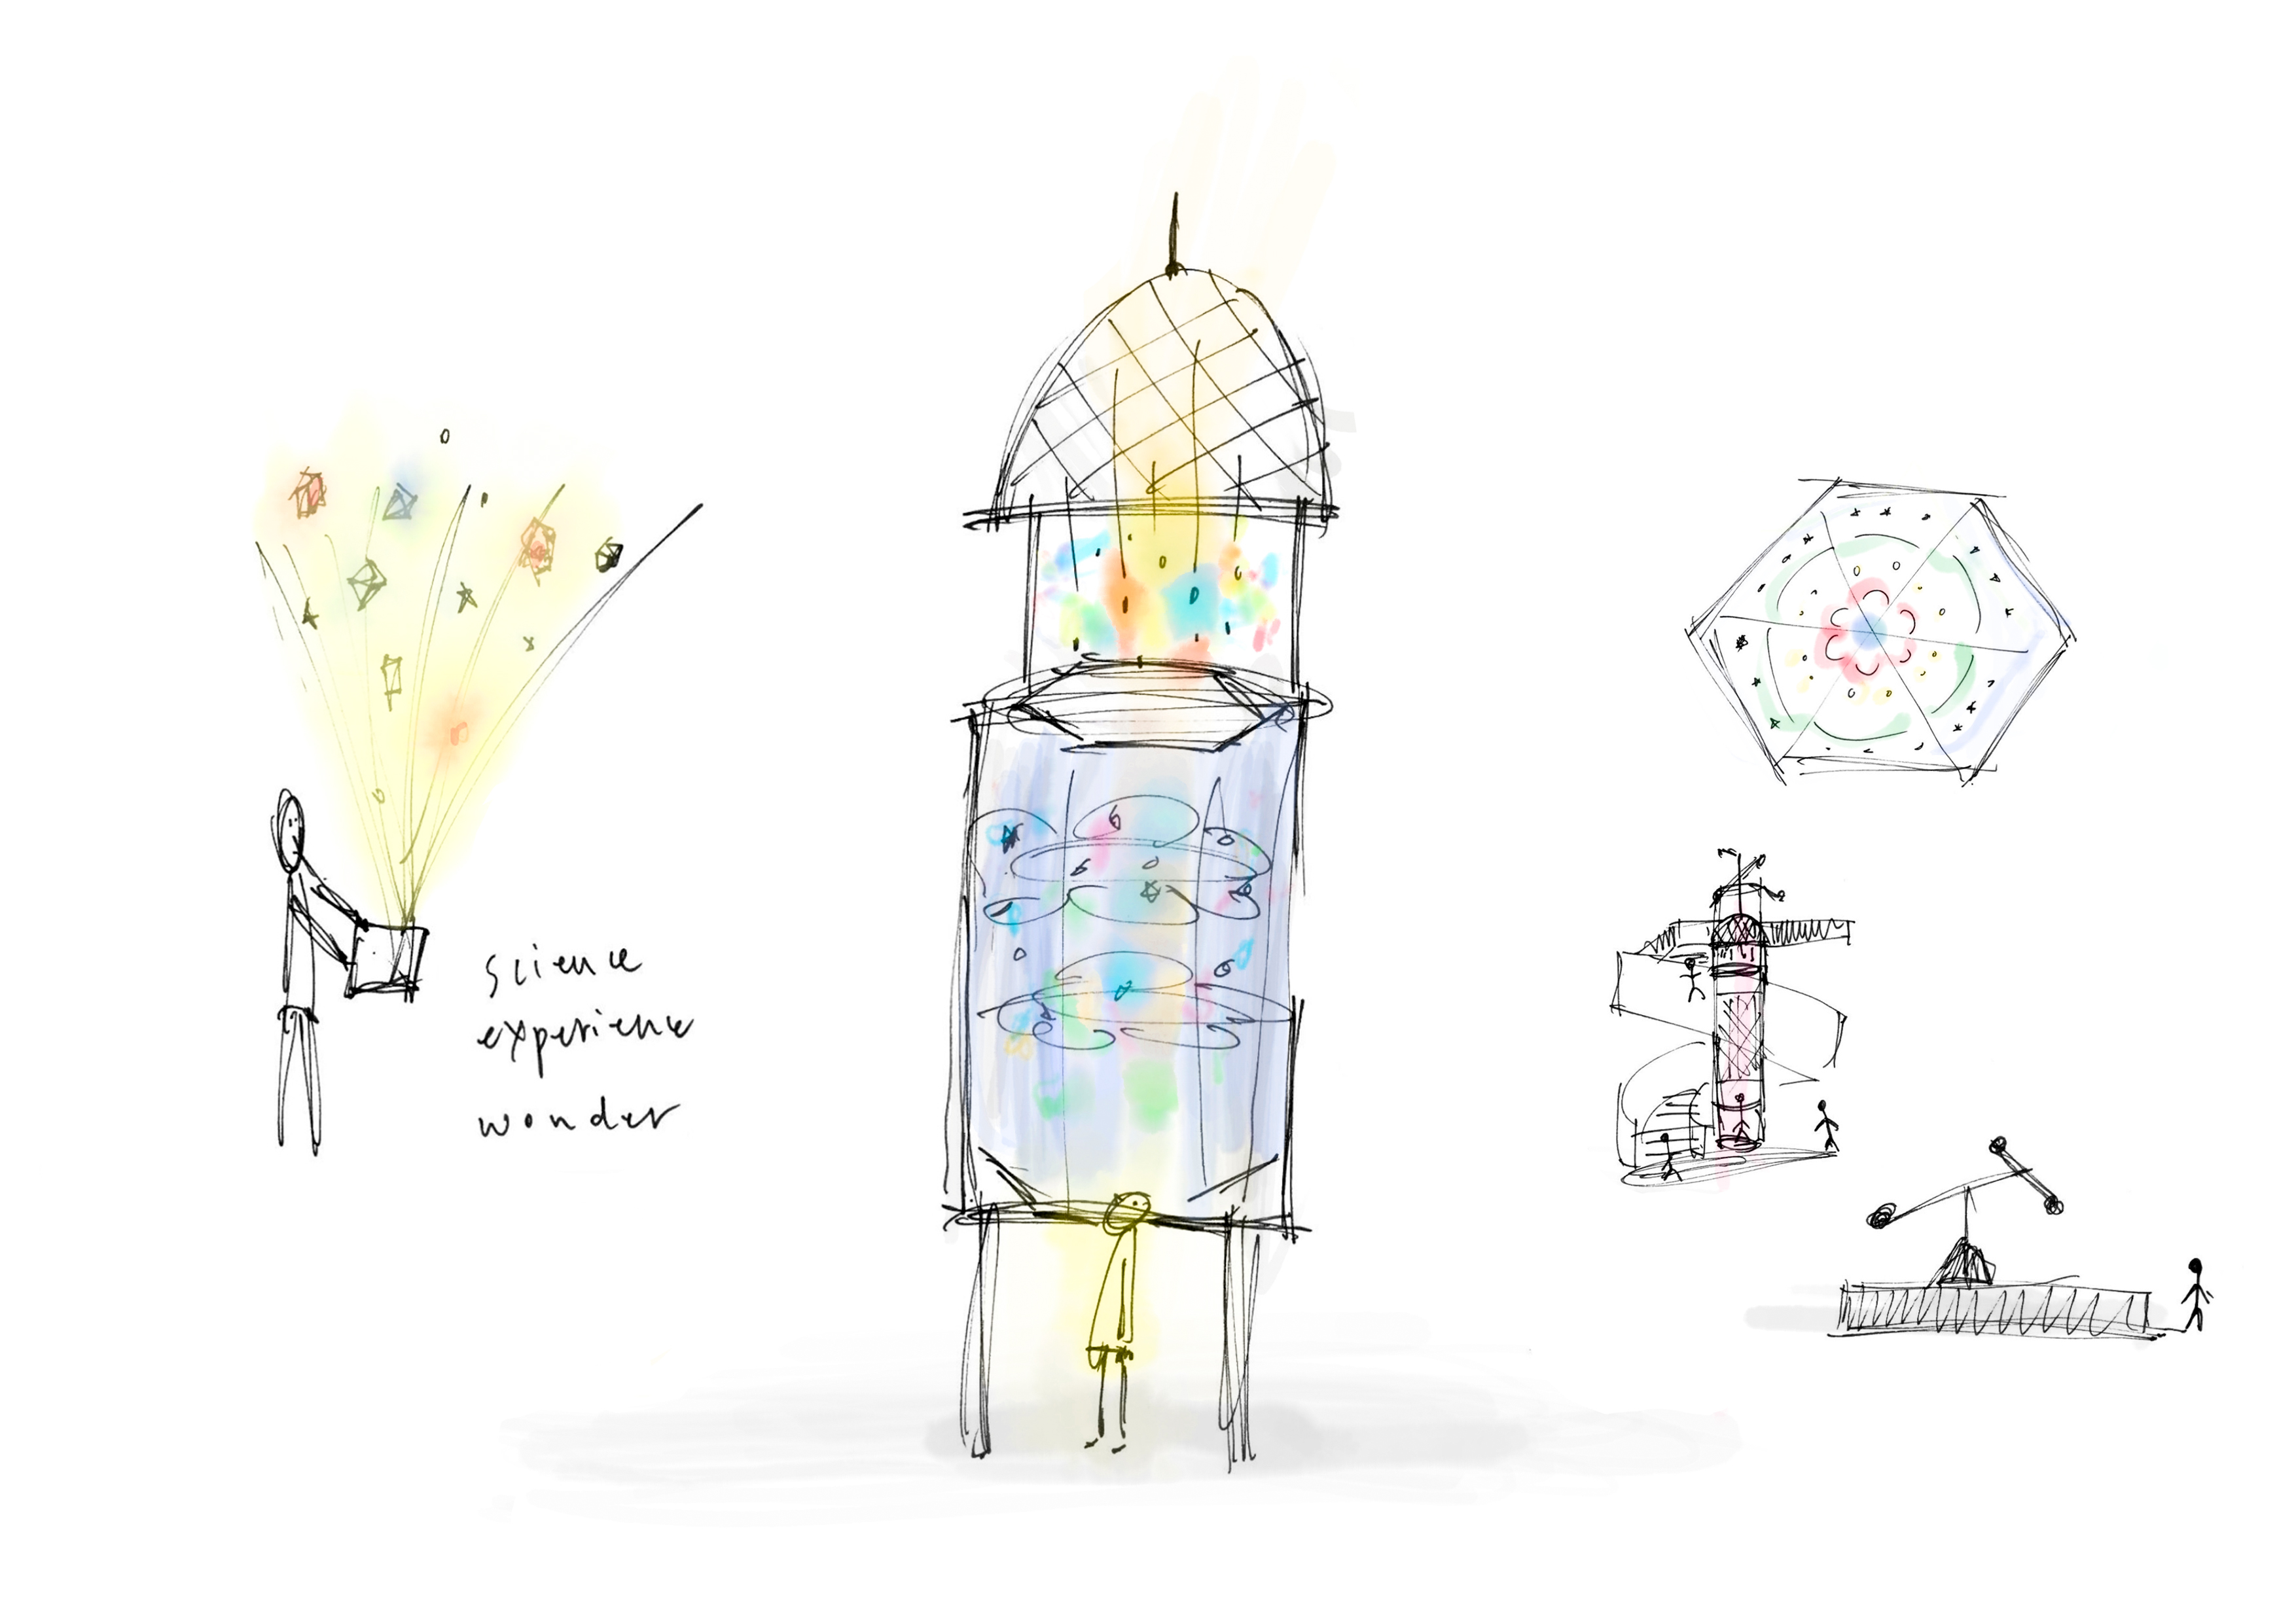 science
experience
wonder